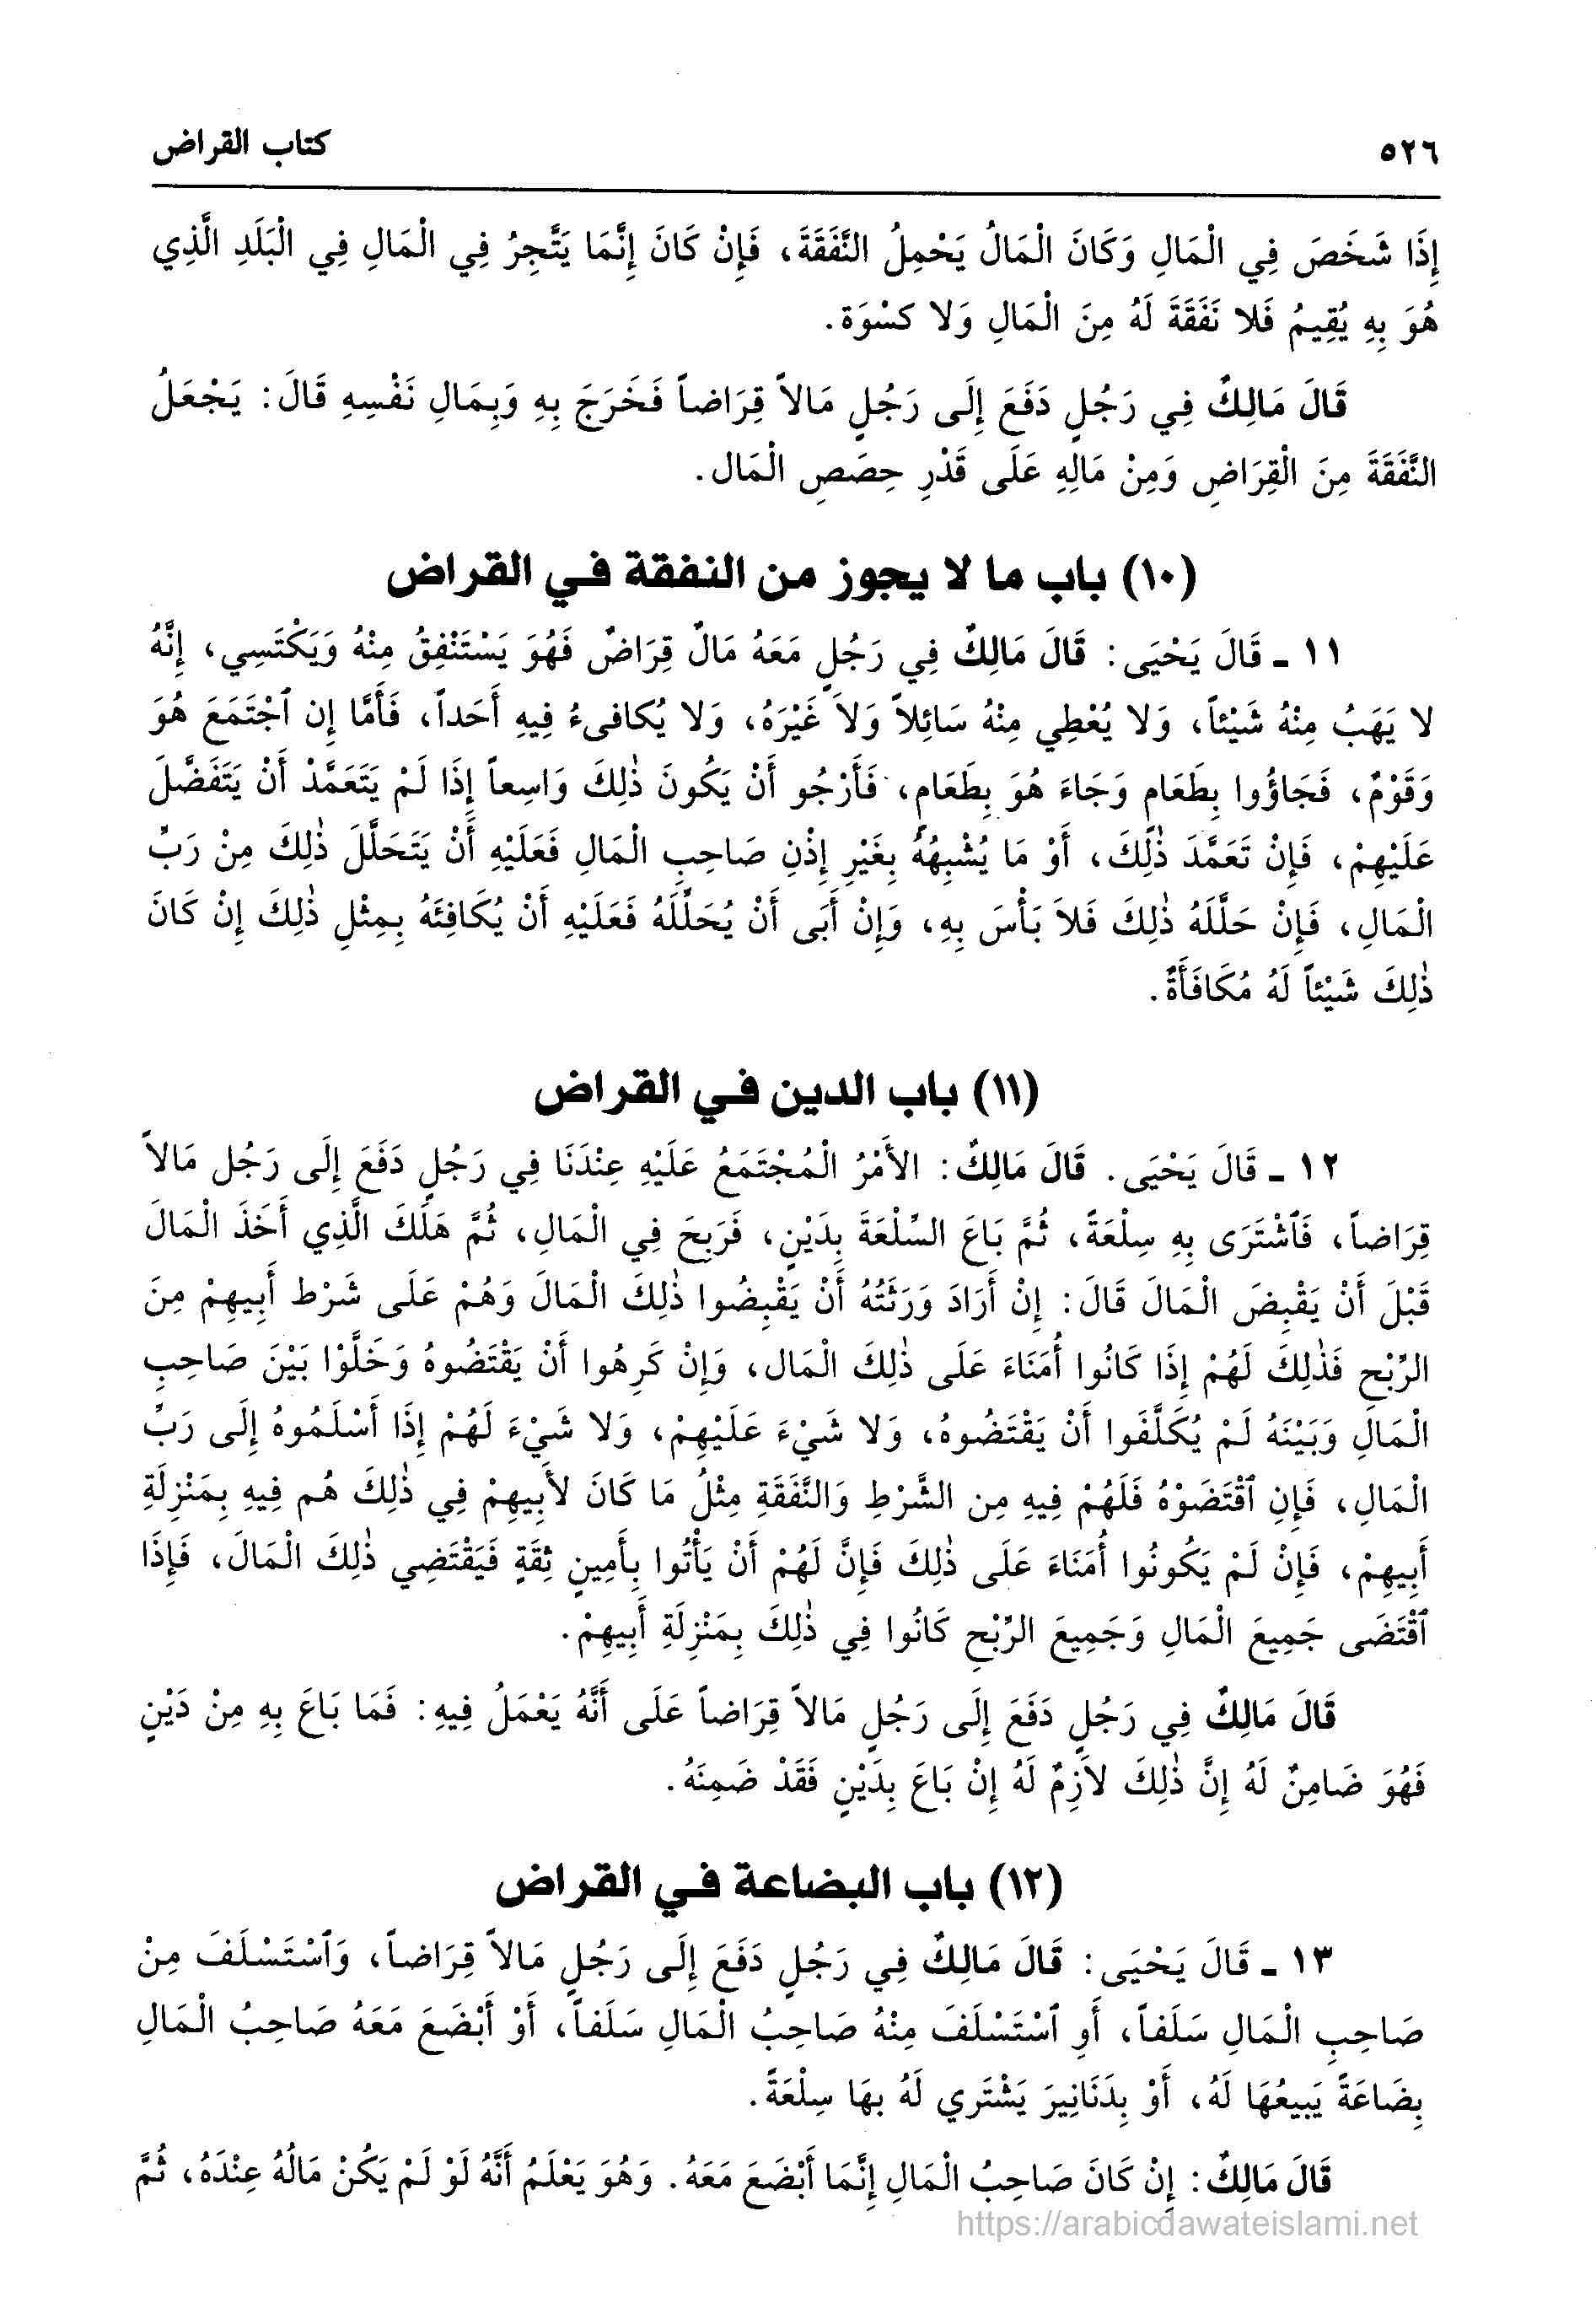 ٥٢٦ كتاب القراض
إِذَا شَخَصَ فِي الْمَالِ وَكَانَ الْمَالُ يَحْمِلُ النَّفَقَةَ، فَإِنْ كَانَ إِنَّمَا يَتَّجِرُ فِي الْمَالِ فِي الْبَلَدِ الَّذِي
هُوَ بِهِ يُقِيمُ فَلا نَفَقَةَ لَهُ مِنَ الْمَالِ وَلا كسْوَة.
قَالَ مَالِكٌ فِي رَجُلٍ دَفَعَ إِلَى رَجُلٍ مَالاً قِرَاضاً فَخَرَجَ بِهِ وَبِمَالِ نَفْسِهِ قَالَ: يَجْعَلُ
النَّفَقَةَ مِنَ الْقِرَاضِ وَمِنْ مَالِهِ عَلَى قَدْرِ حِصَصِ الْمَال.
(١٠) باب ما لا يجوز من النفقة في القراض
١١ - قَالَ يَحْيَى: قَالَ مَالِكٌ فِي رَجُلٍ مَعَهُ مَالٌ قِرَاضٌ فَهُوَ يَسْتَنْفِقُ مِنْهُ وَيَكْتَسِي، إِنَّهُ
لا يَهَبُ مِنْهُ شَيْئاً، وَلا يُعْطِي مِنْهُ سَائِلاً وَلاَ غَيْرَهُ، وَلا يُكافىءُ فِيهِ أَحَداً، فَأَمَّا إِن ٱجْتَمَعَ هُوَ
وَقَوْمٌ، فَجَاؤُوا بِطَعَامٍ وَجَاءَ هُوَ بِطَعَامٍ، فَأَرْجُو أَنْ يَكُونَ ذٰلِكَ وَاسِعاً إِذَا لَمْ يَتَعَمَّدْ أَنْ يَتَفَضَّلَ
عَلَيْهِمْ، فَإِنْ تَعَمَّدَ ذٰلِكَ، أَوْ مَا يُشْبِهُهُ بِغَيْرِ إِذْنِ صَاحِبِ الْمَالِ فَعَلَيْهِ أَنْ يَتَحَلَّلَ ذٰلِكَ مِنْ رَبِّ
الْمَالِ، فَإِنْ حَلَّلَهُ ذٰلِكَ فَلاَ بَأْسَ بِهِ، وَإِنْ أَبَى أَنْ يُحَلِّلَهُ فَعَلَيْهِ أَنْ يُكَافِئَهُ بِمِثْلِ ذٰلِكَ إِنْ كَانَ
ذٰلِكَ شَيْئاً لَهُ مُكَافَأَةٌ.
(١١) باب الدين في القراض
١٢ - قَالَ يَحْيَى. قَالَ مَالِكٌ: الأَمْرُ الْمُجْتَمَعُ عَلَيْهِ عِنْدَنَا فِي رَجُلٍ دَفَعَ إِلَى رَجُل مَالاً
قِرَاضاً، فَٱشْتَرَى بِهِ سِلْعَةً، ثُمَّ بَاعَ السِّلْعَةَ بِدَيْنٍ، فَرَبِحَ فِي الْمَالِ، ثُمَّ هَلَكَ الَّذِي أَخَذَ الْمَالَ
قَبْلَ أَنْ يَقْبِضَ الْمَالَ قَالَ: إِنْ أَرَادَ وَرَثَتُهُ أَنْ يَقْبِضُوا ذٰلِكَ الْمَالَ وَهُمْ عَلَى شَرْط أَبِيهِمْ مِنَ
الرِّبْحِ فَذٰلِكَ لَهُمْ إِذَا كَانُوا أُمَنَاءَ عَلَى ذٰلِكَ الْمَال، وَإِنْ كَرِهُوا أَنْ يَقْتَضُوهُ وَخَلَّوْا بَيْنَ صَاحِبِ
الْمَالِ وَبَيْنَهُ لَمْ يُكَلَّفَوا أَنْ يَقْتَضُوهُ، وَلا شَيْءَ عَلَيْهِمْ، وَلا شَيْءَ لَهُمْ إِذَا أَسْلَمُوهُ إِلَى رَبِّ
الْمَالِ، فَإِنِ ٱقْتَضَوْهُ فَلَهُمْ فِيهِ مِن الشَّرْطِ وَالنَّفَقَةِ مِثْلُ مَا كَانَ لأَبِيهِمْ فِي ذٰلِكَ هُم فِيهِ بِمَنْزِلَةِ
أَبِيهِمْ، فَإِنْ لَمْ يَكُونُوا أُمَنَاءَ عَلَى ذٰلِكَ فَإِنَّ لَهُمْ أَنْ يَأْتُوا بِأَمِينٍ ثِقَةٍ فَيَقْتَضِي ذٰلِكَ الْمَالَ، فَإِذَا
ٱقْتَضَى جَمِيعَ الْمَالِ وَجَمِيعَ الرِّبْحِ كَانُوا فِي ذٰلِكَ بِمَنْزِلَةِ أَبِيهِمْ.
قَالَ مَالِكٌ فِي رَجُلٍ دَفَعَ إِلَى رَجُلٍ مَالاً قِرَاضاً عَلَى أَنَّهُ يَعْمَلُ فِيهِ: فَمَا بَاعَ بِهِ مِنْ دَيْنٍ
فَهُوَ ضَامِنٌ لَهُ إِنَّ ذٰلِكَ لاَزِمٌ لَهُ إِنْ بَاعَ بِدَيْنٍ فَقَدْ ضَمِنَهُ.
(١٢) باب البضاعة في القراض
١٣ - قَالَ يَحْيَى: قَالَ مَالِكٌ فِي رَجُلٍ دَفَعَ إِلَى رَجُلٍ مَالاً قِرَاضاً، وَٱسْتَسْلَفَ مِنْ
صَاحِبِ الْمَالِ سَلَفاً، أَوِ ٱسْتَسْلَفَ مِنْهُ صَاحِبُ الْمَالِ سَلَفاً، أَوْ أَبْضَعَ مَعَهُ صَاحِبُ الْمَالِ
بِضَاعَةً يَبِيعُهَا لَهُ، أَوْ بِدَنَانِيرَ يَشْتَرِي لَهُ بهَا سِلْعَةً.
قَالَ مَالِكٌ: إِنْ كَانَ صَاحِبُ الْمَالِ إِنَّمَا أَبْضَعَ مَعَهُ. وَهُوَ يَعْلَمُ أَنَّهُ لَوْ لَمْ يَكُنْ مَالُهُ عِنْدَهُ، ثُمَّ
https://arabicdawateislami.net